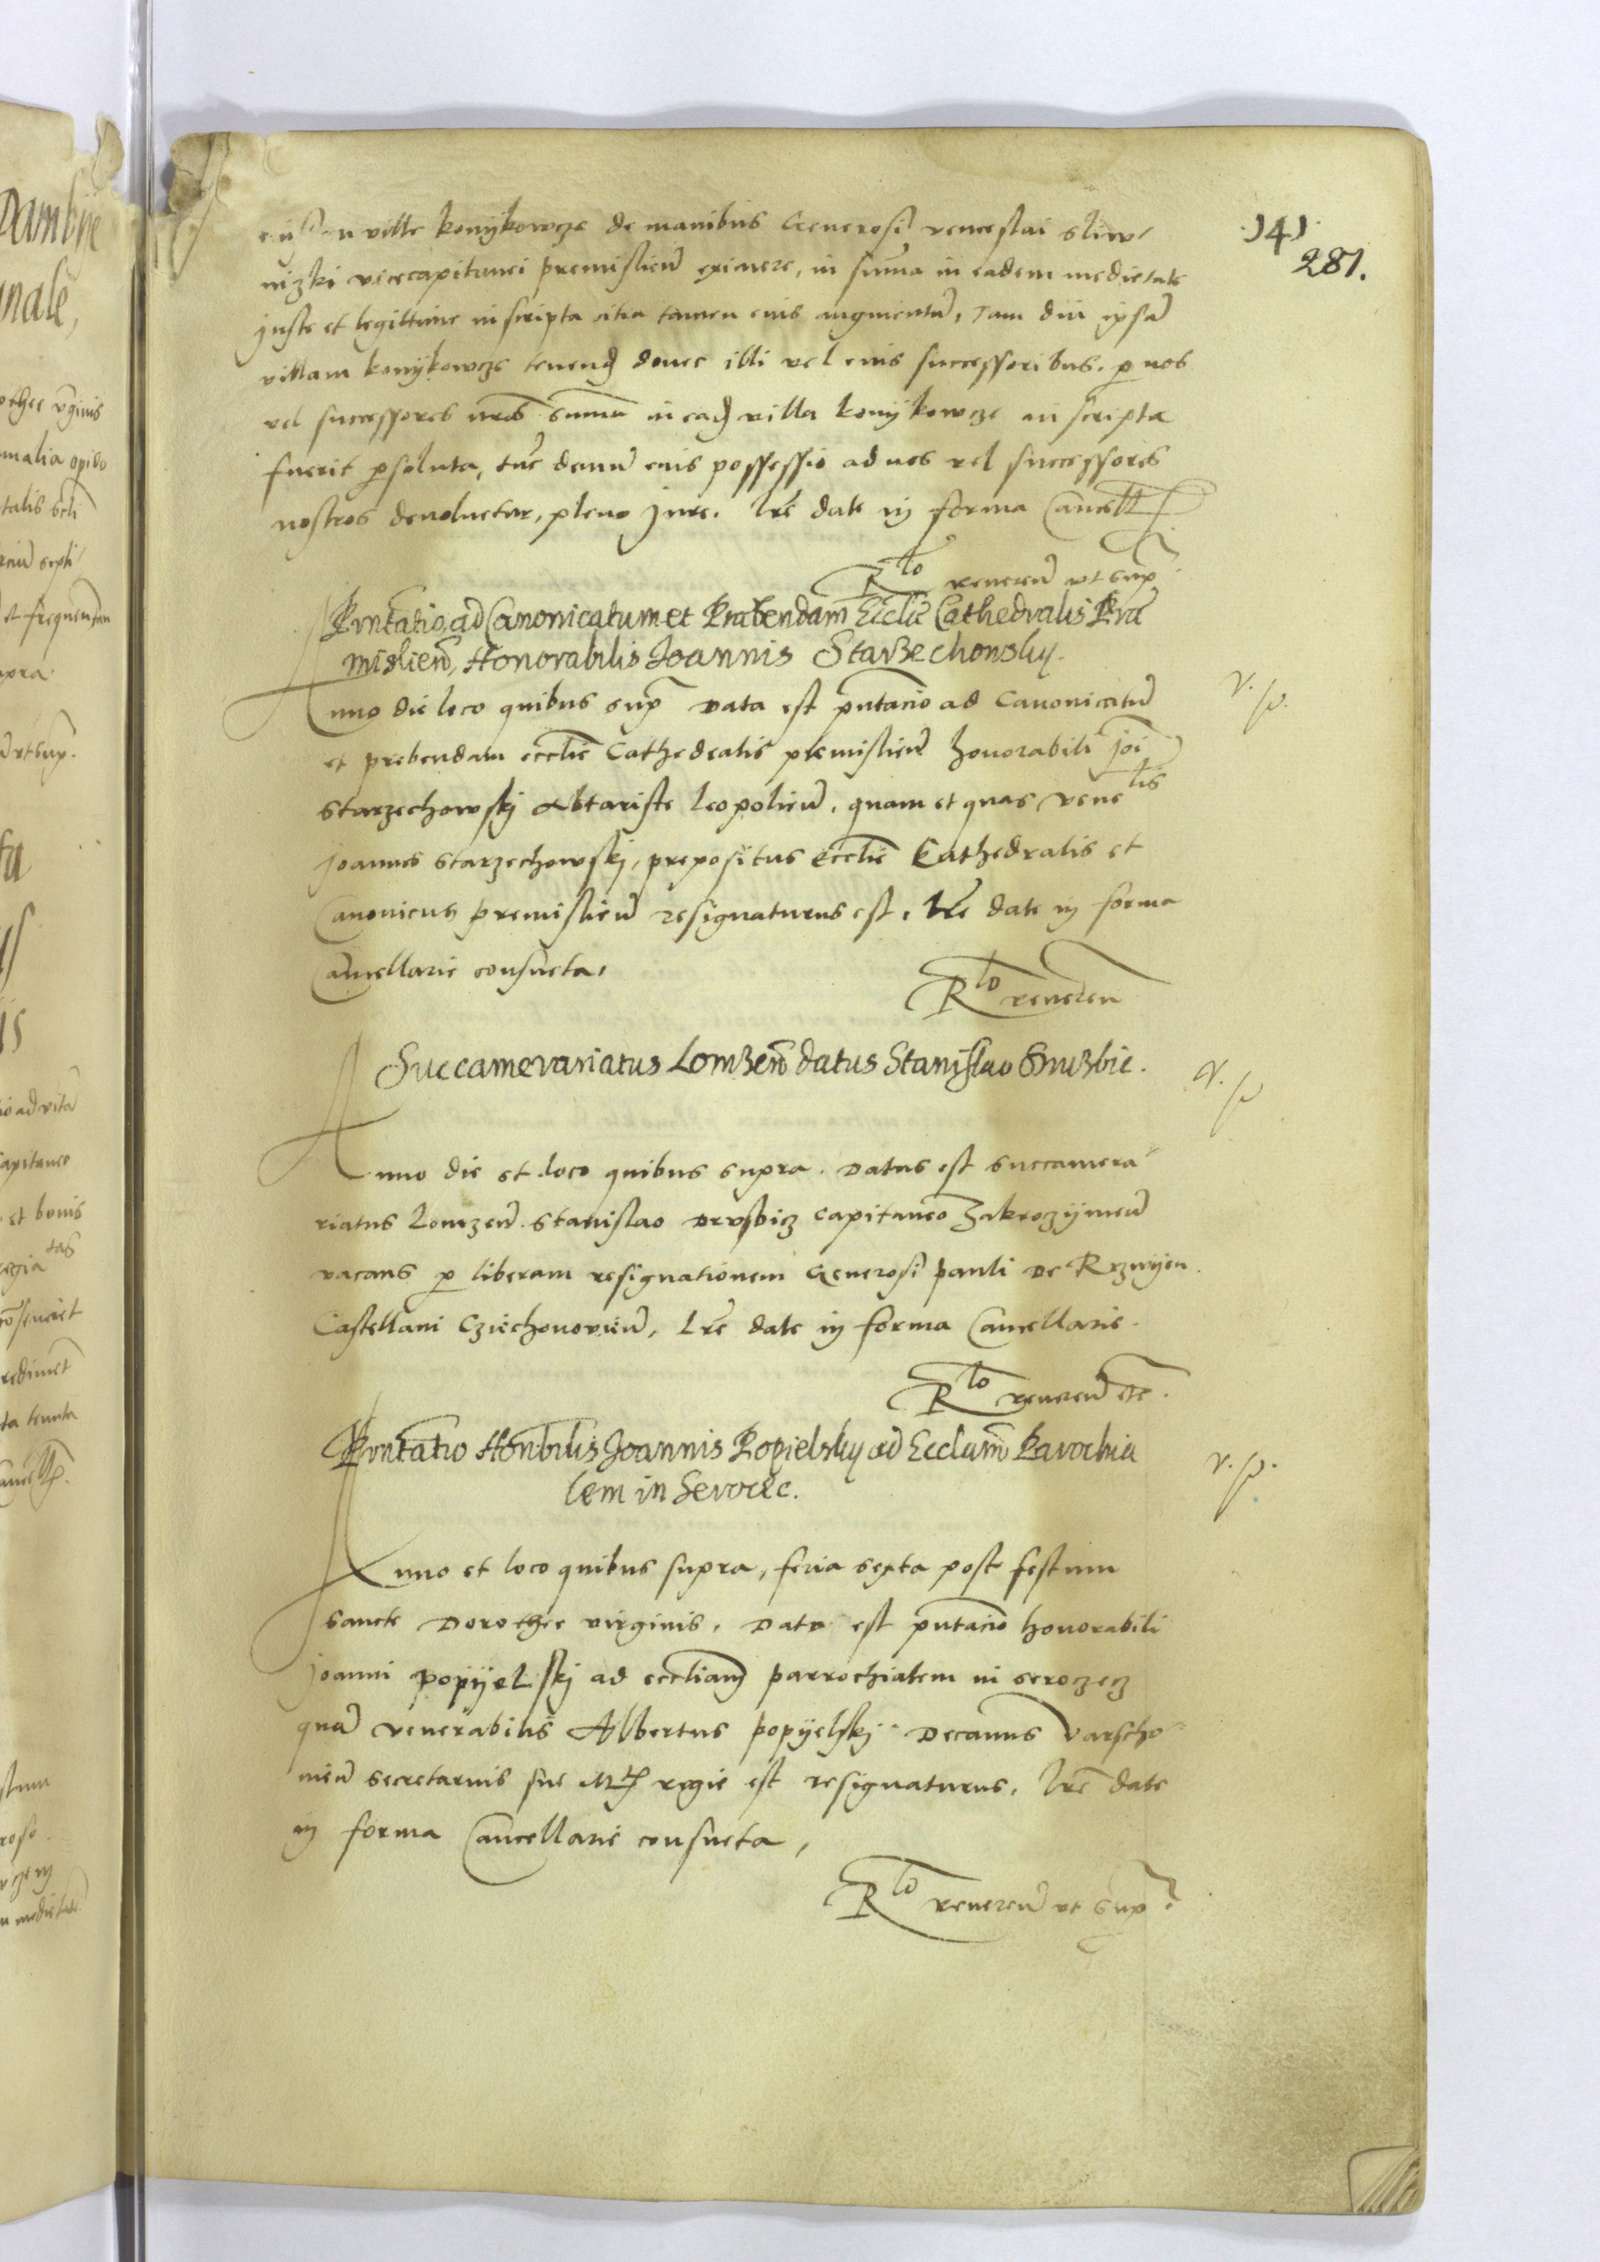 141
281.
ville konÿkowcze de manibus Generosi venceslai sliw
nizki vicecapitanei premislien̄ eximere, in suma in eadem medietate
juste et legittime inscripta citra tamen eius augmentū, Tam diu ipsā
villam konÿkowcze tenend donec illi vel eius successoribus, p nos
vel successores nr̄os suma in ead villa konÿkowcze inscripta
fuerit psoluta, tuc demū eius possessio ad nos vel successores
nostros devoluetur, pleno jure. Lr̄e date in forma Cancell
Rlo reveren̄ ut sup
Pnt̄atio ad Canonicatum et Præbendam Eccl̄ie Cathedralis Præ
mislien̄, Honorabilis Joannis Starzechonsky.
Anno die loco quibus sup Data est pn̄tacio ad Canonicatū
et prebendam eccl̄ie Cathedralis premislien̄ honorabili Joī
starzechowskj Altariste leopolien̄, quam et quas venelis
joannes starzechowskj, prepositus eccl̄ie Cathedralis et
Canonicus premislien̄ resignaturus est, Lr̄e date in forma
Cancellarie consueta,
Rlo reveren
Succamerariatus Lomzen̄ datus Stanislao Druzbic.
v. p.
Anno die et loco quibus supra. Datus est succamera
riatus lomzen̄. stanislao Drusbicz capitaneo Zakroczÿmen̄
vacans p liberam resignationem Generosi pauli De Rzwÿen
Castellani Cziechonovien̄, Lr̄e date in forma Cancellarie.
Rlo reveren̄ etc.
Pnt̄atio Honbilis Joannis Popielsky ad Ecclam̄ Parochia
lem in Serocec.
v. p.
Anno et loco quibus supra, feria sexta post festum
sancte Dorothee virginis, Data est pn̄tacio honorabili
joanni popÿelskj ad eccliam parrochialem in seroczecz
quā venerabilis Albertus popÿelskj Decanus Varscho
vien̄ secretarius sue Mtis regie est resignaturus, Lr̄e date
in forma Cancellarie consueta,
Rlo reveren̄ ut sup